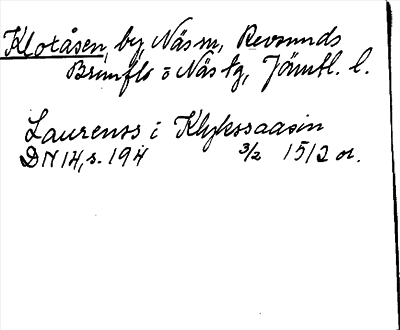 Klotåsen, by, Näs m, Revsunds
Brunflo o Näs tg, Jämtl. l.
Laurenss i Klykssaasin
DN 14, s. 194 3/2 1512 or.